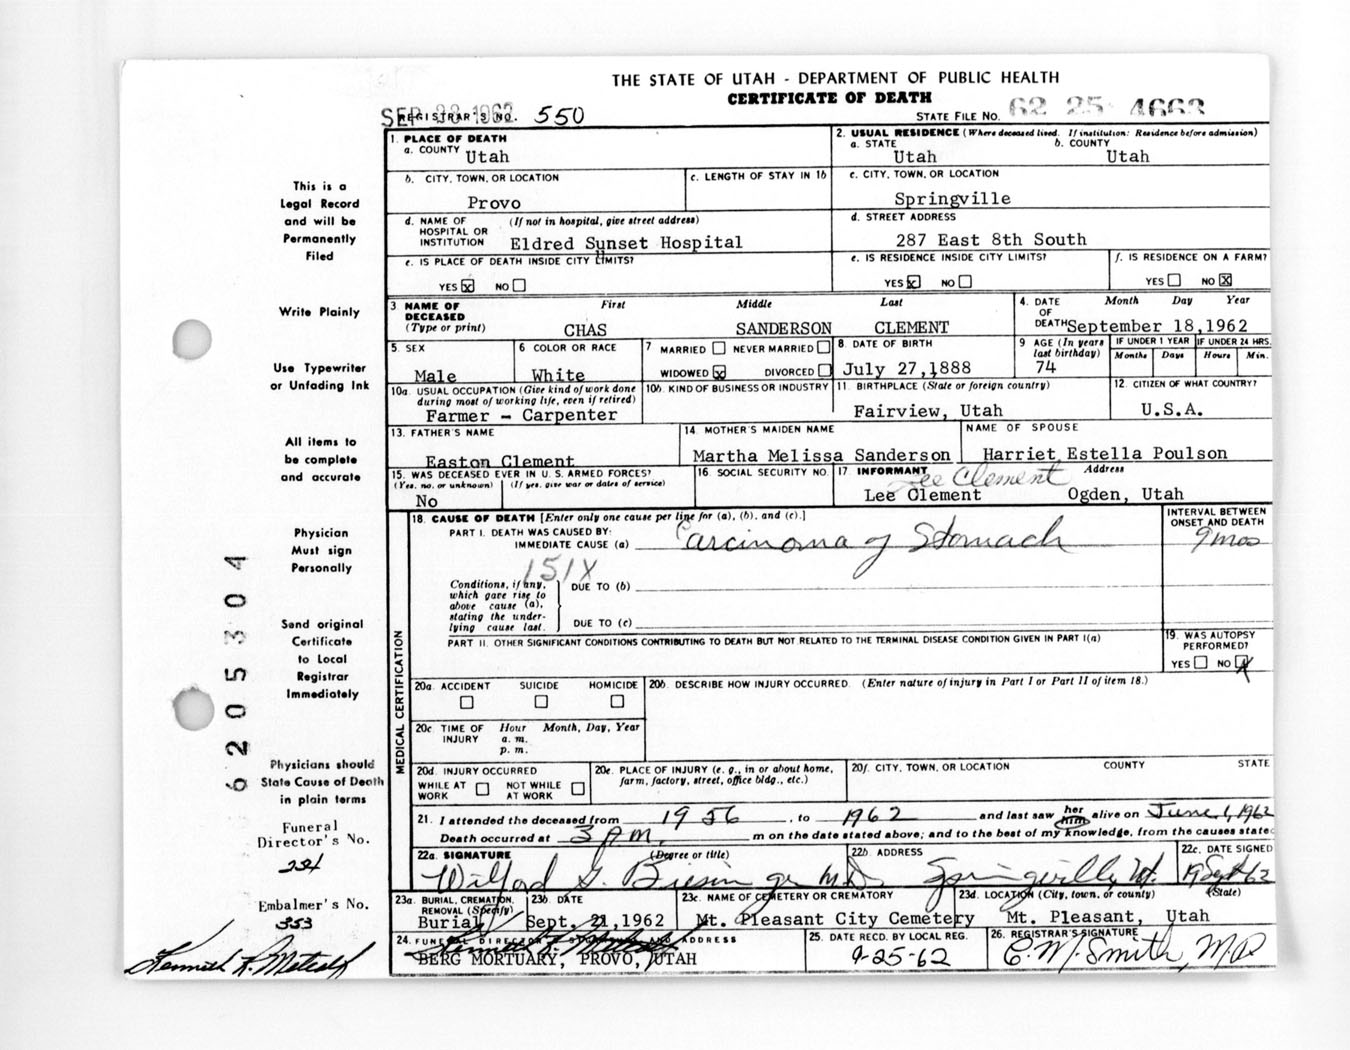 THE STATE OF UTAH - DEPARTMENT OF PUBLIC HEALTH
CERTIFICATE OF DEATH
REGISTRAR'S NO. 550
STATE FILE NO. 62 25 4663
1. PLACE OF DEATH
a. COUNTY Utah
2. USUAL RESIDENCE (Where deceased lived. If institution: Residence before admission)
a. STATE Utah b. COUNTY Utah
b. CITY, TOWN, OR LOCATION Provo
c. LENGTH OF STAY IN 1b
c. CITY, TOWN, OR LOCATION Springville
d. NAME OF HOSPITAL OR INSTITUTION (If not in hospital, give street address)
Eldred Sunset Hospital
d. STREET ADDRESS
287 East 8th South
e. IS PLACE OF DEATH INSIDE CITY LIMITS?
YES x NO
e. IS RESIDENCE INSIDE CITY LIMITS?
YES x NO
f. IS RESIDENCE ON A FARM?
YES NO x
3 NAME OF DECEASED (Type or print)
First Middle Last
CHAS SANDERSON CLEMENT
4. DATE OF DEATH Month Day Year
September 18,1962
5. SEX Male
6 COLOR OR RACE White
7 MARRIED NEVER MARRIED
WIDOWED x DIVORCED
8. DATE OF BIRTH July 27,1888
9 AGE (In years last birthday) 74
IF UNDER 1 YEAR Months Days
IF UNDER 24 HRS. Hours Min.
10a. USUAL OCCUPATION (Give kind of work done during most of working life, even if retired)
Farmer - Carpenter
10b. KIND OF BUSINESS OR INDUSTRY
11. BIRTHPLACE (State or foreign country)
Fairview, Utah
12. CITIZEN OF WHAT COUNTRY?
U.S.A.
13. FATHER'S NAME
Easton Clement
14. MOTHER'S MAIDEN NAME
Martha Melissa Sanderson
NAME OF SPOUSE
Harriet Estella Poulson
15. WAS DECEASED EVER IN U. S. ARMED FORCES?
(Yes, no, or unknown) (If yes, give war or dates of service)
No
16. SOCIAL SECURITY NO.
17. INFORMANT Address
Lee Clement
Lee Clement Ogden, Utah
MEDICAL CERTIFICATION
18. CAUSE OF DEATH [Enter only one cause per line for (a), (b), and (c).]
INTERVAL BETWEEN ONSET AND DEATH
PART I. DEATH WAS CAUSED BY:
IMMEDIATE CAUSE (a) Carcinoma of Stomach 9 mos
151X
Conditions, if any, which gave rise to above cause (a), stating the underlying cause last.
DUE TO (b)
DUE TO (c)
PART II. OTHER SIGNIFICANT CONDITIONS CONTRIBUTING TO DEATH BUT NOT RELATED TO THE TERMINAL DISEASE CONDITION GIVEN IN PART I(a)
19. WAS AUTOPSY PERFORMED?
YES NO x
20a. ACCIDENT SUICIDE HOMICIDE
20b. DESCRIBE HOW INJURY OCCURRED. (Enter nature of injury in Part I or Part II of item 18.)
20c TIME OF INJURY Hour a. m. p. m. Month, Day, Year
20d. INJURY OCCURRED
WHILE AT WORK NOT WHILE AT WORK
20e. PLACE OF INJURY (e. g., in or about home, farm, factory, street, office bldg., etc.)
20f. CITY, TOWN, OR LOCATION COUNTY STATE
21. I attended the deceased from 1956, to 1962 and last saw her him alive on June 1, 1962
Death occurred at 3 PM. m on the date stated above; and to the best of my knowledge, from the causes state
22a. SIGNATURE (Degree or title)
Wilford G. M.D.
22b. ADDRESS
Springville Ut.
22c. DATE SIGNED
19 Sept 62
23a. BURIAL, CREMATION, REMOVAL (Specify)
Burial
23b. DATE
Sept. 21,1962
23c. NAME OF CEMETERY OR CREMATORY
Mt. Pleasant City Cemetery
23d. LOCATION (City, town, or county) (State)
Mt. Pleasant, Utah
24. FUNERAL DIRECTOR'S SIGNATURE AND ADDRESS
BERG MORTUARY, PROVO, UTAH
25. DATE RECD. BY LOCAL REG.
9-25-62
26. REGISTRAR'S SIGNATURE
C. M. Smith, M.D.
This is a
Legal Record
and will be
Permanently
Filed
Write Plainly
Use Typewriter
or Unfading Ink
All items to
be complete
and accurate
Physician
Must sign
Personally
Send original
Certificate
to Local
Registrar
Immediately
Physicians should
State Cause of Death
in plain terms
Funeral
Director's No.
Embalmer's No.
353
Kenneth R. Metcalf
6205304